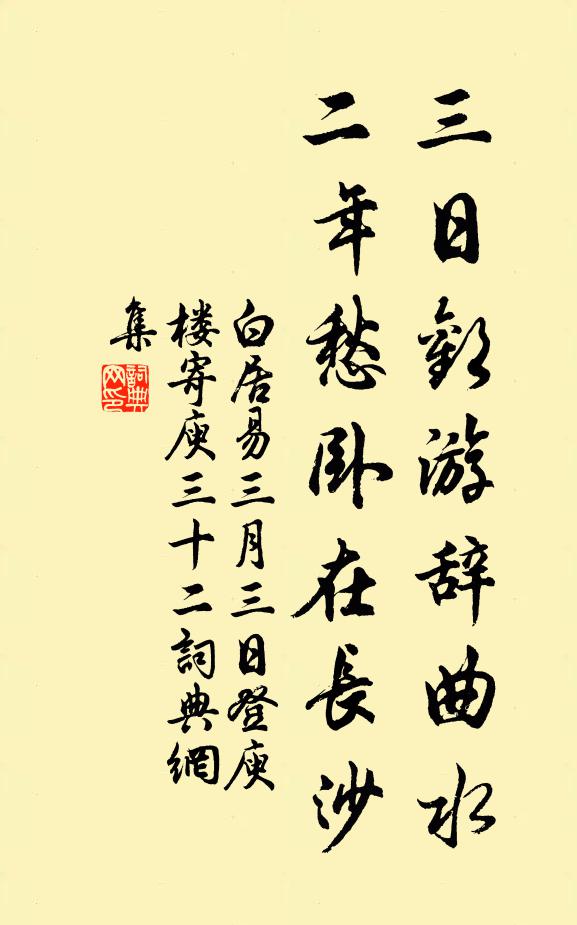 三日歡游辞曲水
二年愁卧在長沙
白居易三月三日登庾
楼寄庾三十二詞典網
集
詞典
网印